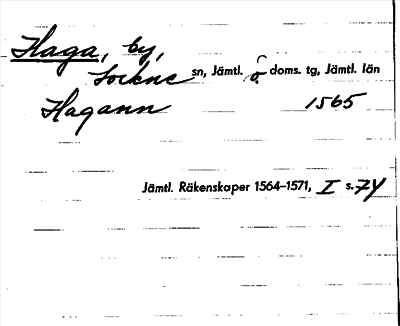 Haga, by,
Lockne sn, Jämtl. ö doms. tg, Jämtl. län
Hagann 1565
Jämtl. Räkenskaper 1564–1571, I s. 74